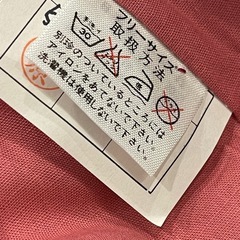 フリーサイズ
取扱方法
30
別珍のついているところには
アイロンをあてないで下さい。
洗濯機は使用しないで下さい。